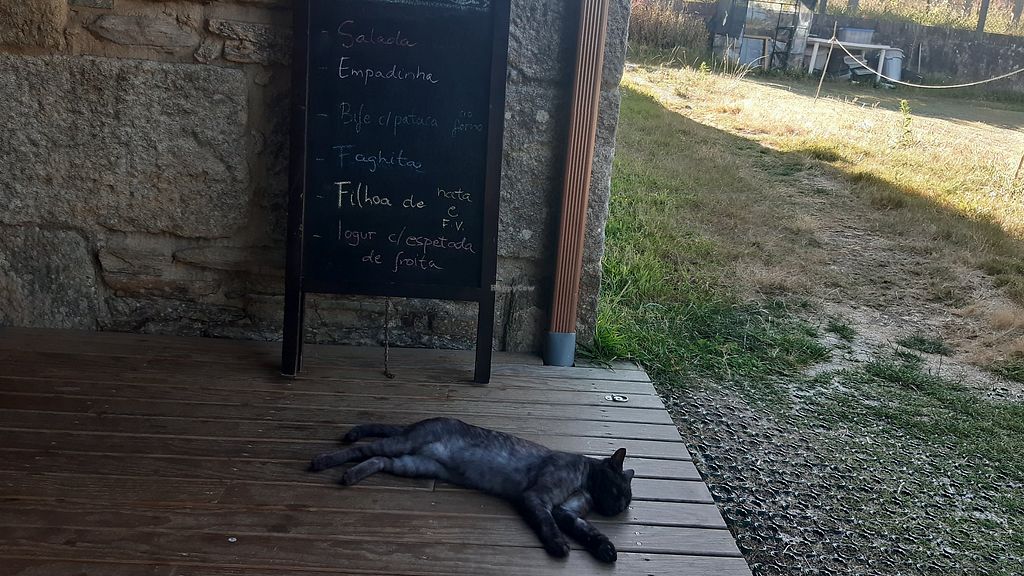 - Salada
- Empadinha
- Bife c/pataca no forno
- Faghita
- Filhoa de nata e F.V.
- Iogur c/espetada
de froita
HappyCow